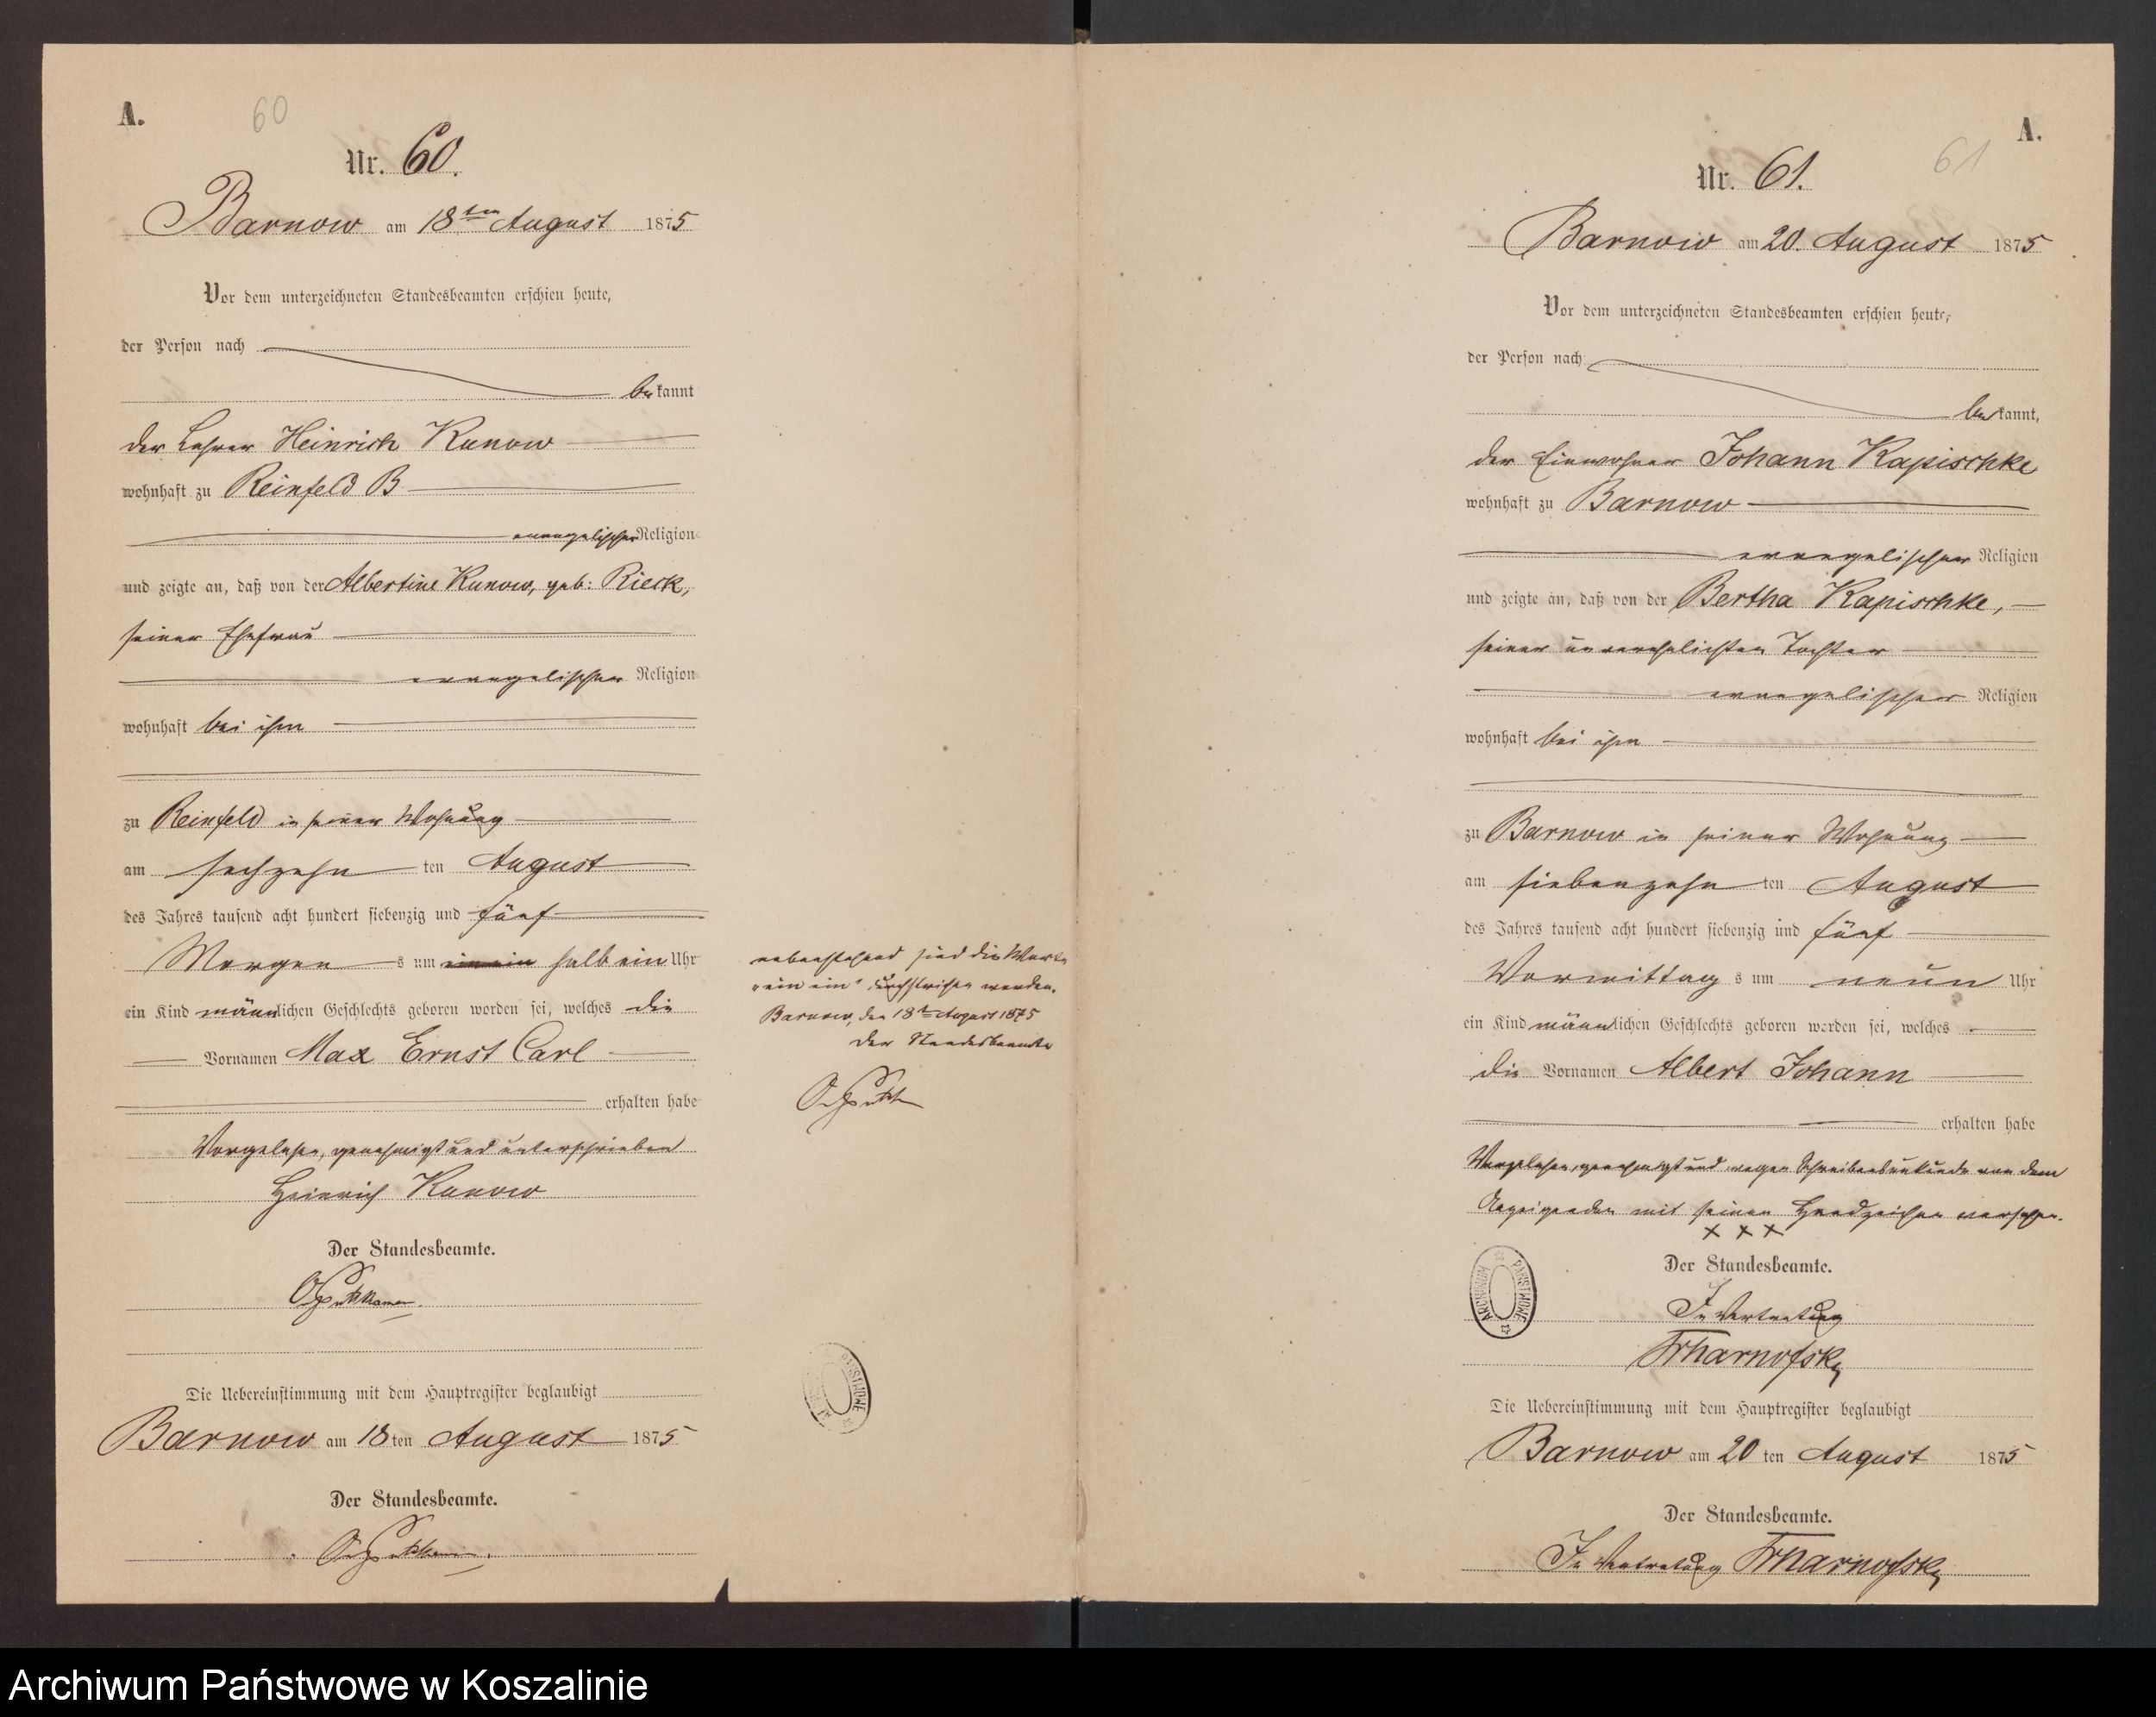 A.
60
Nr. 60.
Barnow am 18ten August 1875
Vor dem unterzeichneten Standesbeamten erschien heute,
der Person nach
bekannt
der Lehrer Heinrich Kunow
wohnhaft zu Reinfeld B
evangelischer Religion
und zeigte an, daß von der Albertine Kunow, geb: Rieck,
seiner Ehefrau
evangelischer Religion
wohnhaft bei ihm
zu Reinfeld in seiner Wohnung
am sechzehnten August
des Jahres tausend acht hundert siebenzig und fünf
Morgens um ein ein halb ein Uhr
ein Kind männlichen Geschlechts geboren worden sei, welches die
Vornamen Max Ernst Carl
erhalten habe
Vorgelesen, genehmigt und unterschrieben
Heinrich Kunow
Der Standesbeamte.
Die Uebereinstimmung mit dem Hauptregister beglaubigt
Barnow am 18ten August 1875
Der Standesbeamte.
nebenstehend sind die Worte
"ein ein" durchstrichen worden.
Barnow, den 18ten August 1875
Der Standesbeamte
A.
61
Nr. 61.
Barnow am 20. August 1875
Vor dem unterzeichneten Standesbeamten erschien heute,
der Person nach
bekannt,
der Einwohner Johann Kapischke
wohnhaft zu Barnow
evangelischer Religion
und zeigte an, daß von der Bertha Kapischke,
seiner unverehelichten Tochter
evangelischer Religion
wohnhaft bei ihm
zu Barnow in seiner Wohnung
am siebenzehnten August
des Jahres tausend acht hundert siebenzig und fünf
Vormittags um neun Uhr
ein Kind männlichen Geschlechts geboren worden sei, welches
die Vornamen Albert Johann
erhalten habe
Vorgelesen, genehmigt und wegen Schreibensunkunde von dem
Anzeigenden mit seinen Handzeichen versehen.
XXX
Der Standesbeamte.
In Vertretung
Die Uebereinstimmung mit dem Hauptregister beglaubigt
Barnow am 20ten August 1875
Der Standesbeamte.
In Vertretung
Archiwum Państwowe w Koszalinie